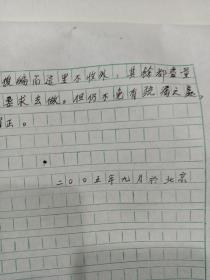 编而这里不收外，其余都尽量
要求去做。但仍不免有疏漏之处，
正。
二〇〇五年九月于北京